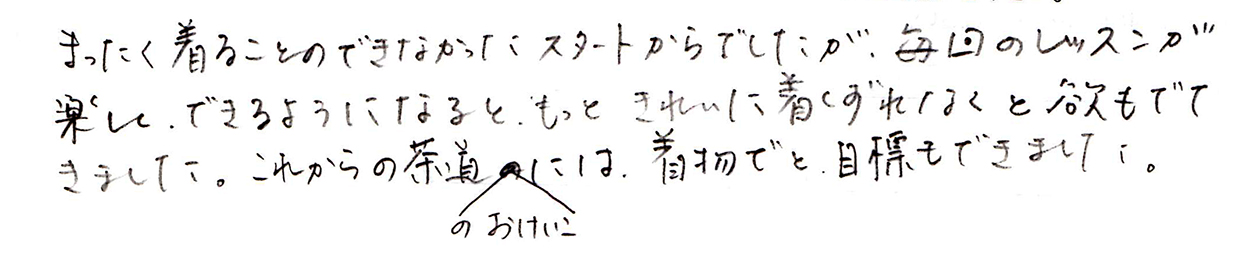 まったく着ることのできなかったスタートからでしたが、毎回のレッスンが
楽しく、できるようになると、もっときれいに着くずれなくと欲もでて
きました。これからの茶道のおけいこには、着物でと、目標もできました。